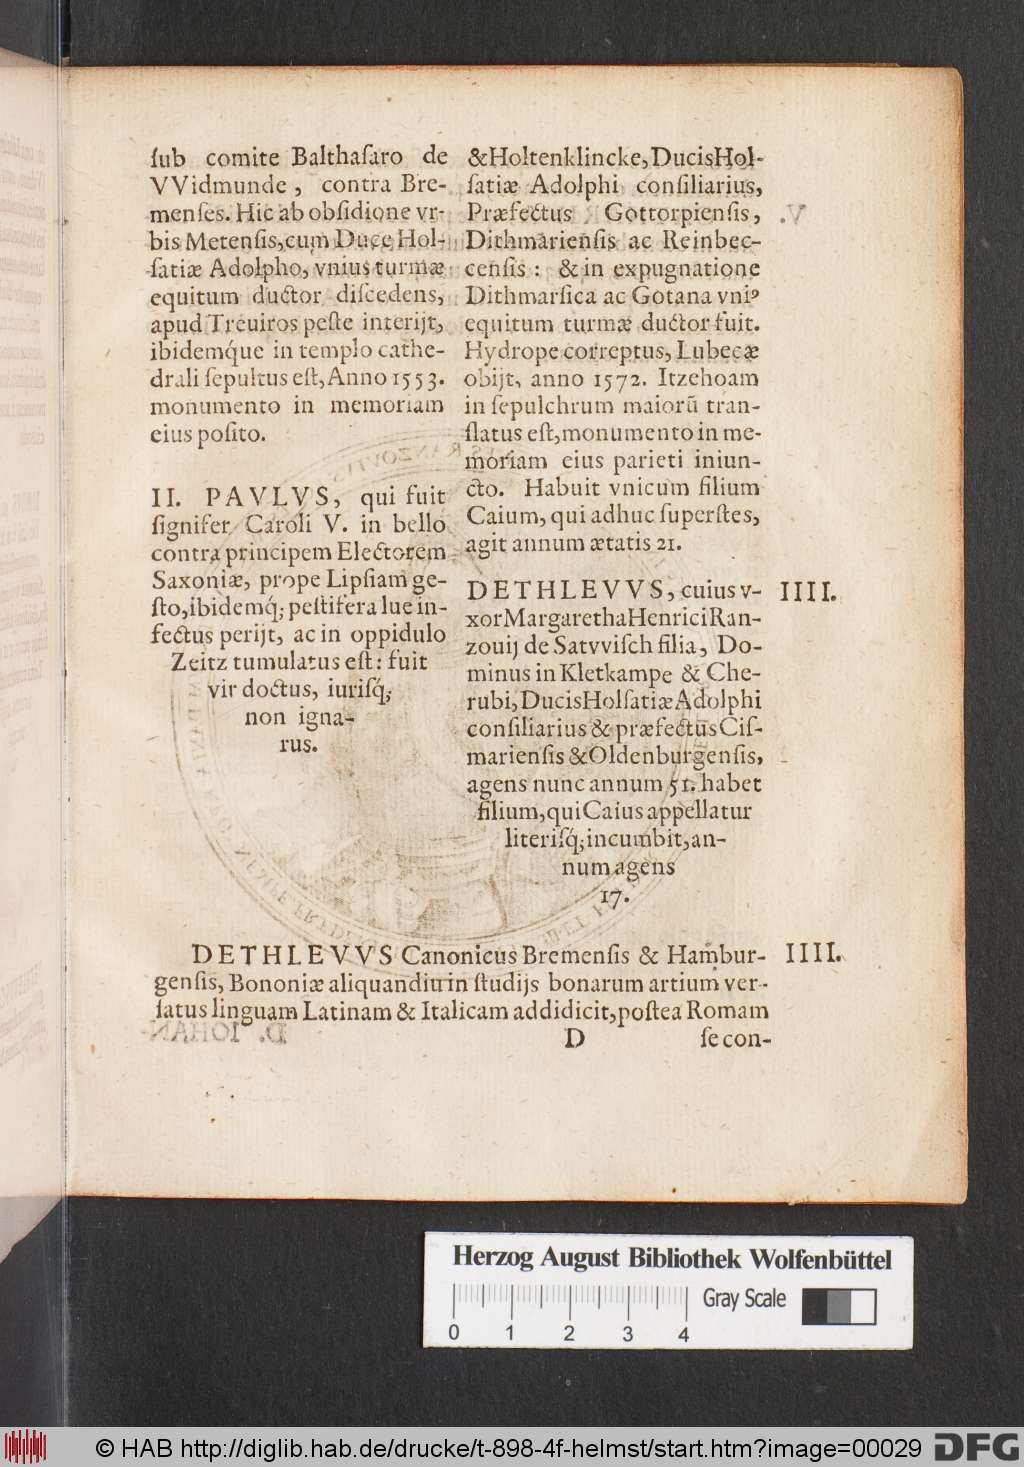 ſub comite Balthaſaro de
VVidmunde, contra Bre-
menſes. Hic ab obſidione vr-
bis Metenſis, cum Duce Hol-
ſatiæ Adolpho, vnius turmæ
equitum ductor diſcedens,
apud Treuiros peſte interijt,
ibidemq́ue in templo cathe-
drali ſepultus eſt, Anno 1553.
monumento in memoriam
eius poſito.
II. PAVLVS, qui fuit
ſignifer Caroli V. in bello
contra principem Electorem
Saxoniæ, prope Lipſiam ge-
ſto, ibidemq́; peſtifera lue in-
fectus perijt, ac in oppidulo
Zeitz tumulatus eſt: fuit
vir doctus, iuriſq́;
non igna-
rus.
& Holtenklincke, Ducis Hol-
ſatiæ Adolphi conſiliarius,
Præfectus Gottorpienſis,
Dithmarienſis ac Reinbec-
cenſis: & in expugnatione
Dithmarſica ac Gotana vniꝰ
equitum turmæ ductor fuit.
Hydrope correptus, Lubecæ
obijt, anno 1572. Itzehoam
in ſepulchrum maiorū tran-
ſlatus eſt, monumento in me-
moriam eius parieti iniun-
cto. Habuit vnicum filium
Caium, qui adhuc ſuperſtes,
agit annum ætatis 21.
DETHLEVVS, cuius v- IIII.
xor Margaretha Henrici Ran-
zouij de Satvviſch filia, Do-
minus in Kletkampe & Che-
rubi, Ducis Holſatiæ Adolphi
conſiliarius & præfectus Ciſ-
marienſis & Oldenburgenſis,
agens nunc annum 51. habet
filium, qui Caius appellatur
literiſq́; incumbit, an-
num agens
17.
DETHLEVVS Canonicus Bremenſis & Hambur- IIII.
genſis, Bononiæ aliquandiu in ſtudijs bonarum artium ver-
ſatus linguam Latinam & Italicam addidicit, poſtea Romam
D ſe con-
Herzog August Bibliothek Wolfenbüttel
0 1 2 3 4 Gray Scale
© HAB http://diglib.hab.de/drucke/t-898-4f-helmst/start.htm?image=00029 DFG